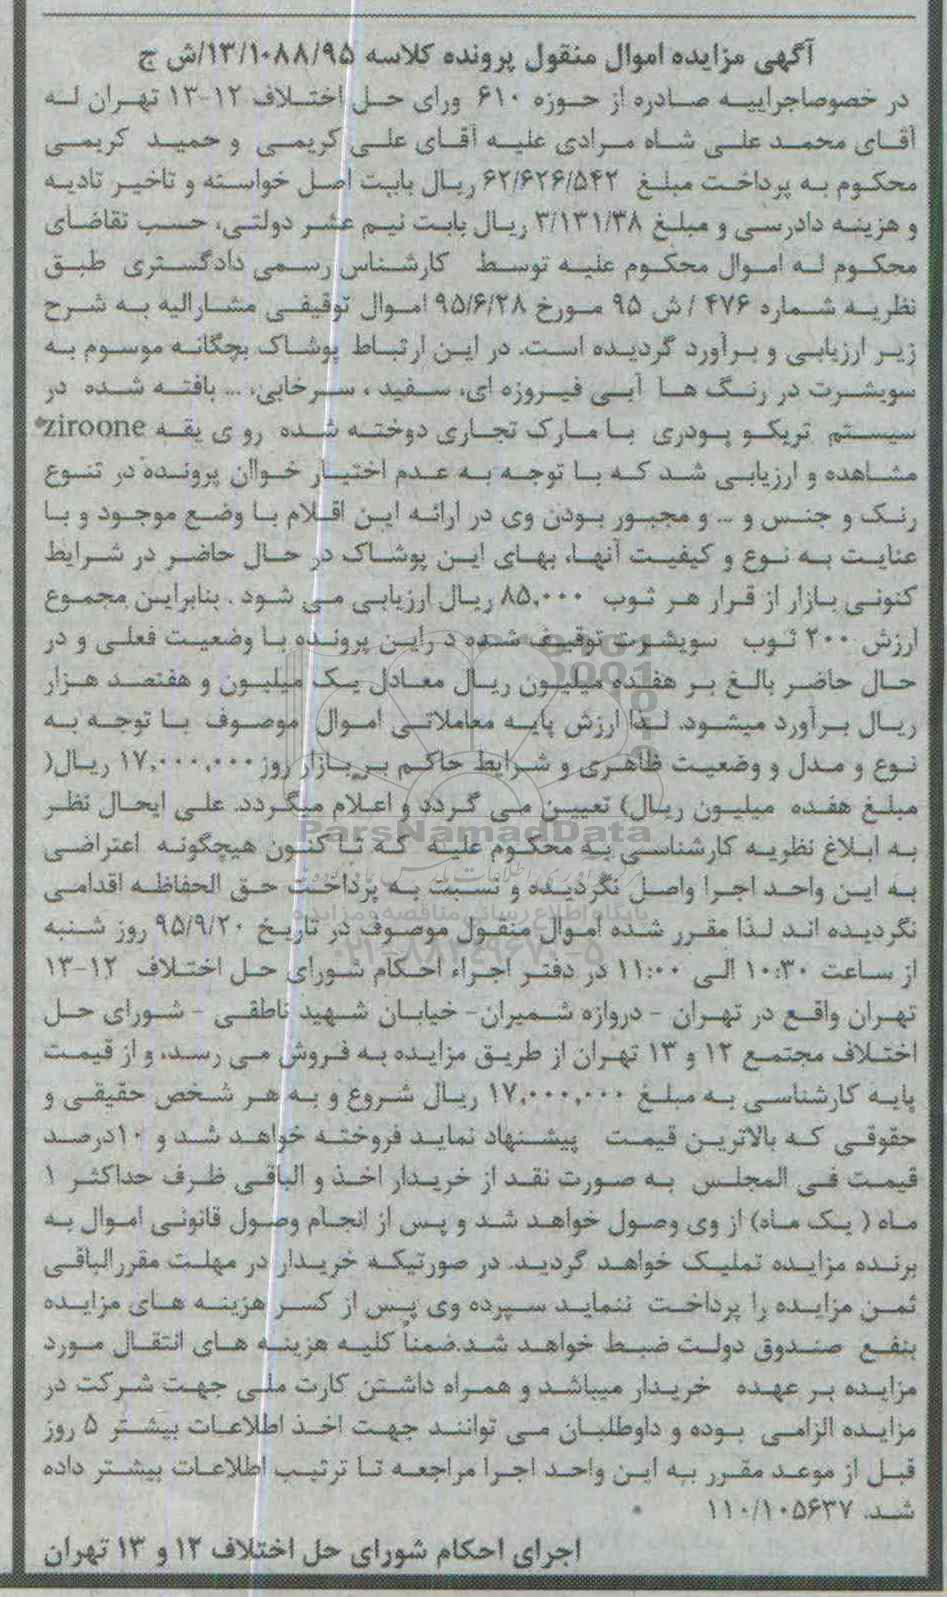 آگهی مزایده اموال منقول پرونده کلاسه ۱۳/۱۰۸۸/۹۵/ش ج
در خصوصاجراییه صادره از حوزه ۶۱۰ ورای حل اختلاف ۱۲-۱۳ تهران له
آقای محمد علی شاه مرادی علیه آقای علی کریمی و حمید کریمی
محکوم به پرداخت مبلغ ۶۲/۶۲۶/۵۴۲ ریال بابت اصل خواسته و تاخیر تادیه
و هزینه دادرسی و مبلغ ۳/۱۳۱/۳۸ ریال بابت نیم عشر دولتی، حسب تقاضای
محکوم له اموال محکوم علیه توسط کارشناس رسمی دادگستری طبق
نظریه شماره ۴۷۶ / ش ۹۵ مورخ ۹۵/۶/۲۸ اموال توقیفی مشارالیه به شرح
زیر ارزیابی و برآورد گردیده است. در این ارتباط پوشاک بچگانه موسوم به
سویشرت در رنگ ها آبی فیروزه ای، سفید ، سرخابی، ... بافته شده در
سیستم تریکو پودری با مارک تجاری دوخته شده رو ی یقه ziroone
مشاهده و ارزیابی شد که با توجه به عدم اختیار خواان پرونده در تنوع
رنگ و جنس و ... و مجبور بودن وی در ارائه این اقلام با وضع موجود و با
عنایت به نوع و کیفیت آنها، بهای این پوشاک در حال حاضر در شرایط
کنونی بازار از قرار هر ثوب ۸۵,۰۰۰ ریال ارزیابی می شود . بنابراین مجموع
ارزش ۲۰۰ ثوب سویشرت توقیف شده د راین پرونده با وضعیت فعلی و در
حال حاضر بالغ بر هفده میلیون ریال معادل یک میلیون و هفتصد هزار
ریال برآورد میشود. لذا ارزش پایه معاملاتی اموال موصوف با توجه به
نوع و مدل و وضعیت ظاهری و شرایط حاکم بر بازار روز ۱۷,۰۰۰,۰۰۰ ریال(
مبلغ هفده میلیون ریال) تعیین می گردد و اعلام میگردد. علی ایحال نظر
ParsNamadData
به ابلاغ نظریه کارشناسی به محکوم علیه که تا کنون هیچگونه اعتراضی
به این واحد اجرا واصل نگردیده و نسبت به پرداخت حق الحفاظه اقدامی
پایگاه اطلاع رسانی مناقصه و مزایده
نگردیده اند لذا مقرر شده اموال منقول موصوف در تاریخ ۹۵/۹/۲۰ روز شنبه
۰۲۱-۸۸۳۴۹۶۷۰-۵
از ساعت ۱۰:۳۰ الی ۱۱:۰۰ در دفتر اجراء احکام شورای حل اختلاف ۱۲-۱۳
تهران واقع در تهران - دروازه شمیران- خیابان شهید ناطقی - شورای حل
اختلاف مجتمع ۱۲ و ۱۳ تهران از طریق مزایده به فروش می رسد، و از قیمت
پایه کارشناسی به مبلغ ۱۷,۰۰۰,۰۰۰ ریال شروع و به هر شخص حقیقی و
حقوقی که بالاترین قیمت پیشنهاد نماید فروخته خواهد شد و ۱۰درصد
قیمت فی المجلس به صورت نقد از خریدار اخذ و الباقی ظرف حداکثر ۱
ماه ( یک ماه) از وی وصول خواهد شد و پس از انجام وصول قانونی اموال به
برنده مزایده تملیک خواهد گردید. در صورتیکه خریدار در مهلت مقررالباقی
ثمن مزایده را پرداخت ننماید سپرده وی پس از کسر هزینه های مزایده
بنفع صندوق دولت ضبط خواهد شد.ضمناً کلیه هزینه های انتقال مورد
مزایده بر عهده خریدار میباشد و همراه داشتن کارت ملی جهت شرکت در
مزایده الزامی بوده و داوطلبان می توانند جهت اخذ اطلاعات بیشتر ۵ روز
قبل از موعد مقرر به این واحد اجرا مراجعه تا ترتیب اطلاعات بیشتر داده
شد. ۱۱۰/۱۰۵۶۳۷
اجرای احکام شورای حل اختلاف ۱۲ و ۱۳ تهران